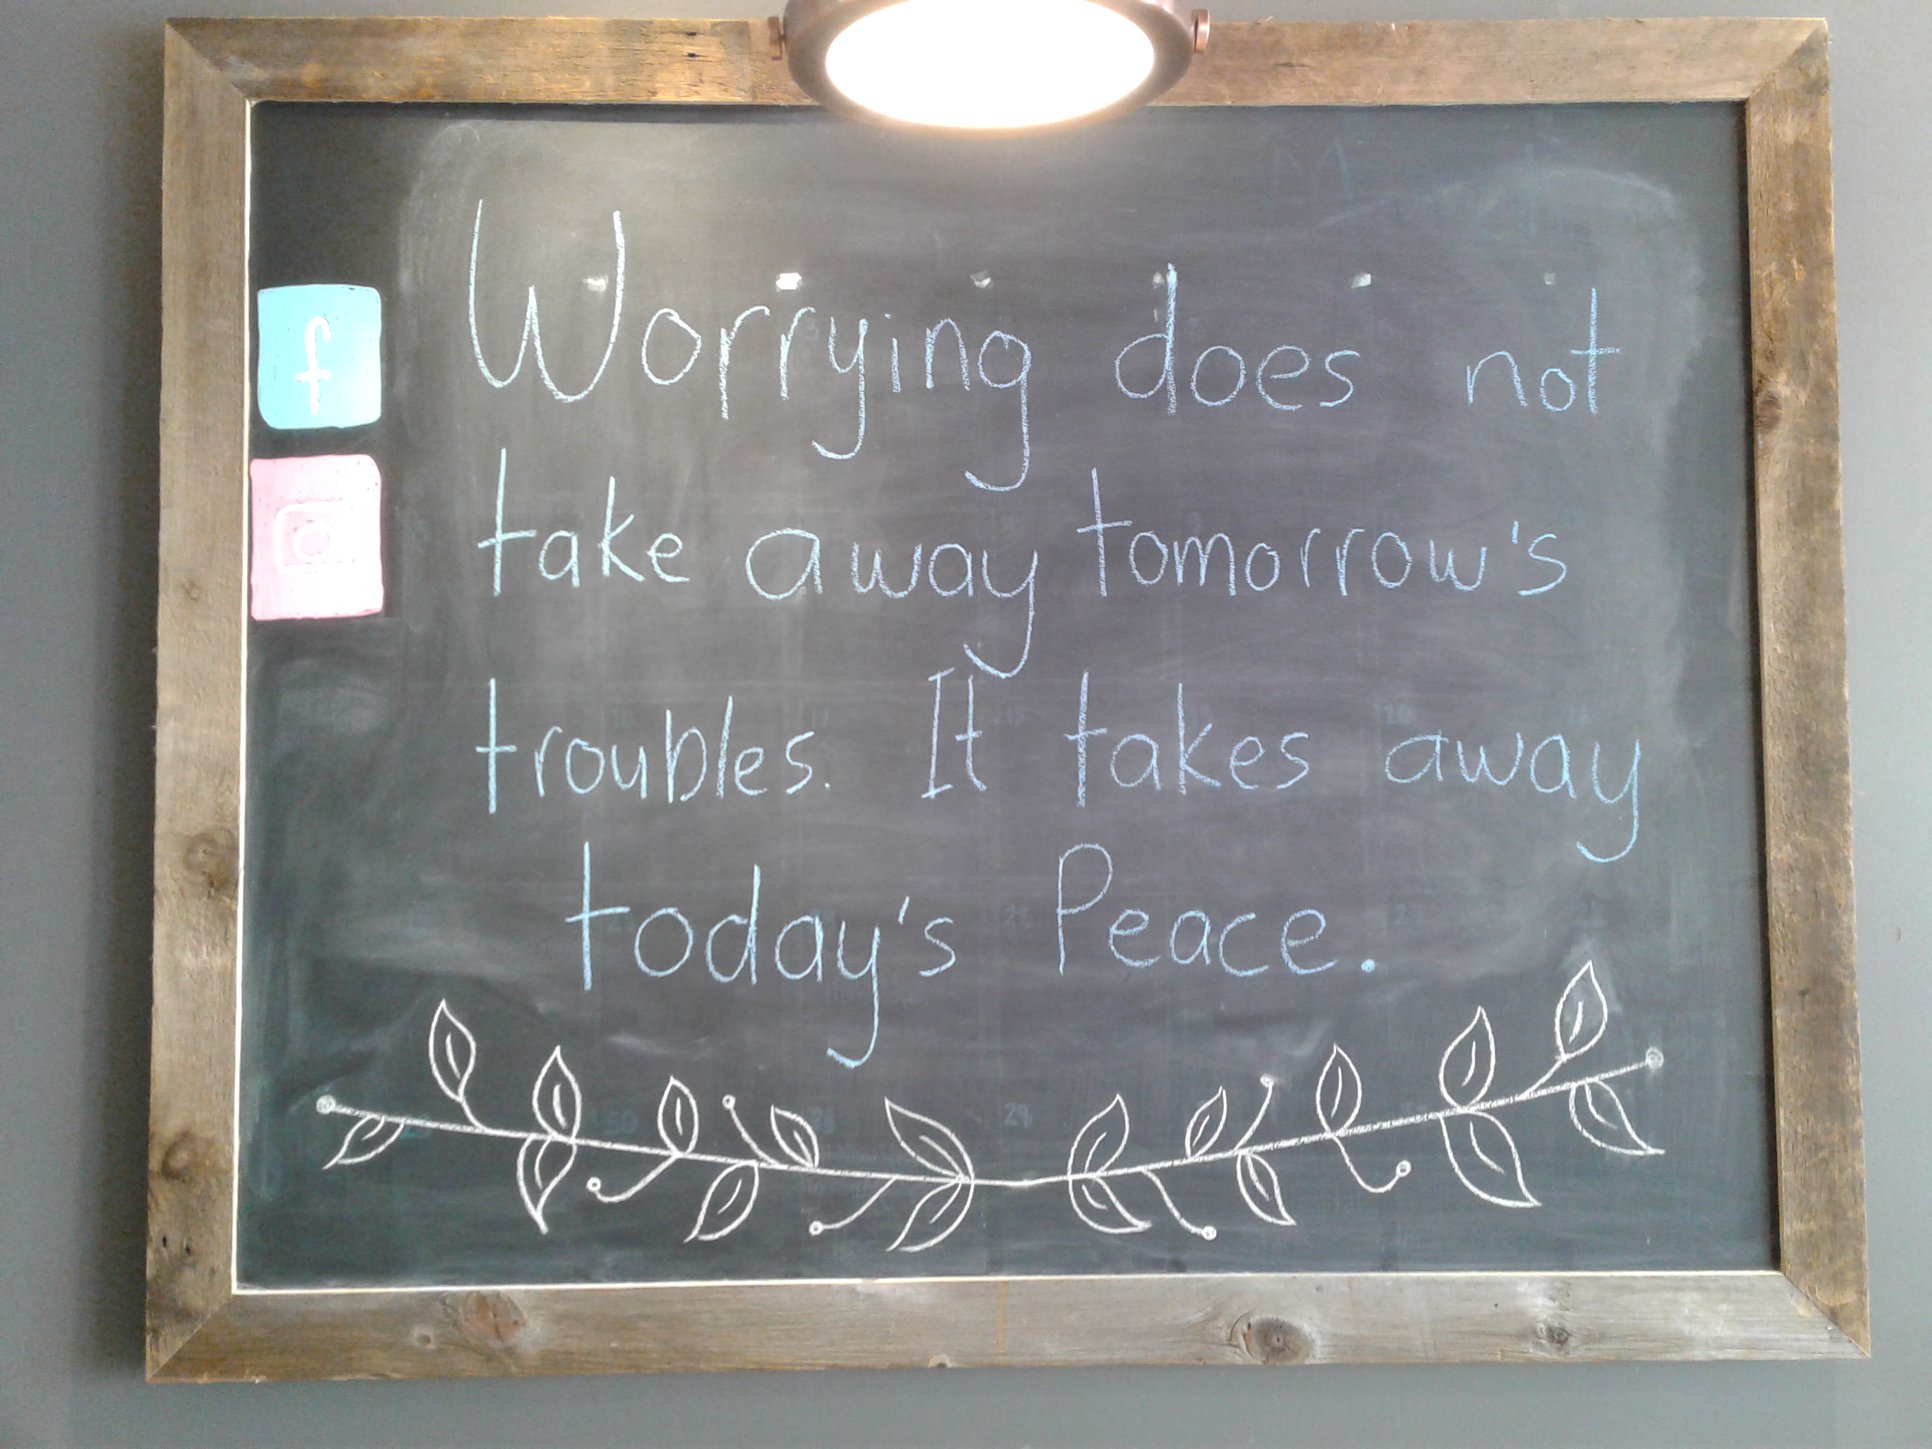 Worrying does not
take away tomorrow's
troubles. It takes away
today's Peace.
f
29